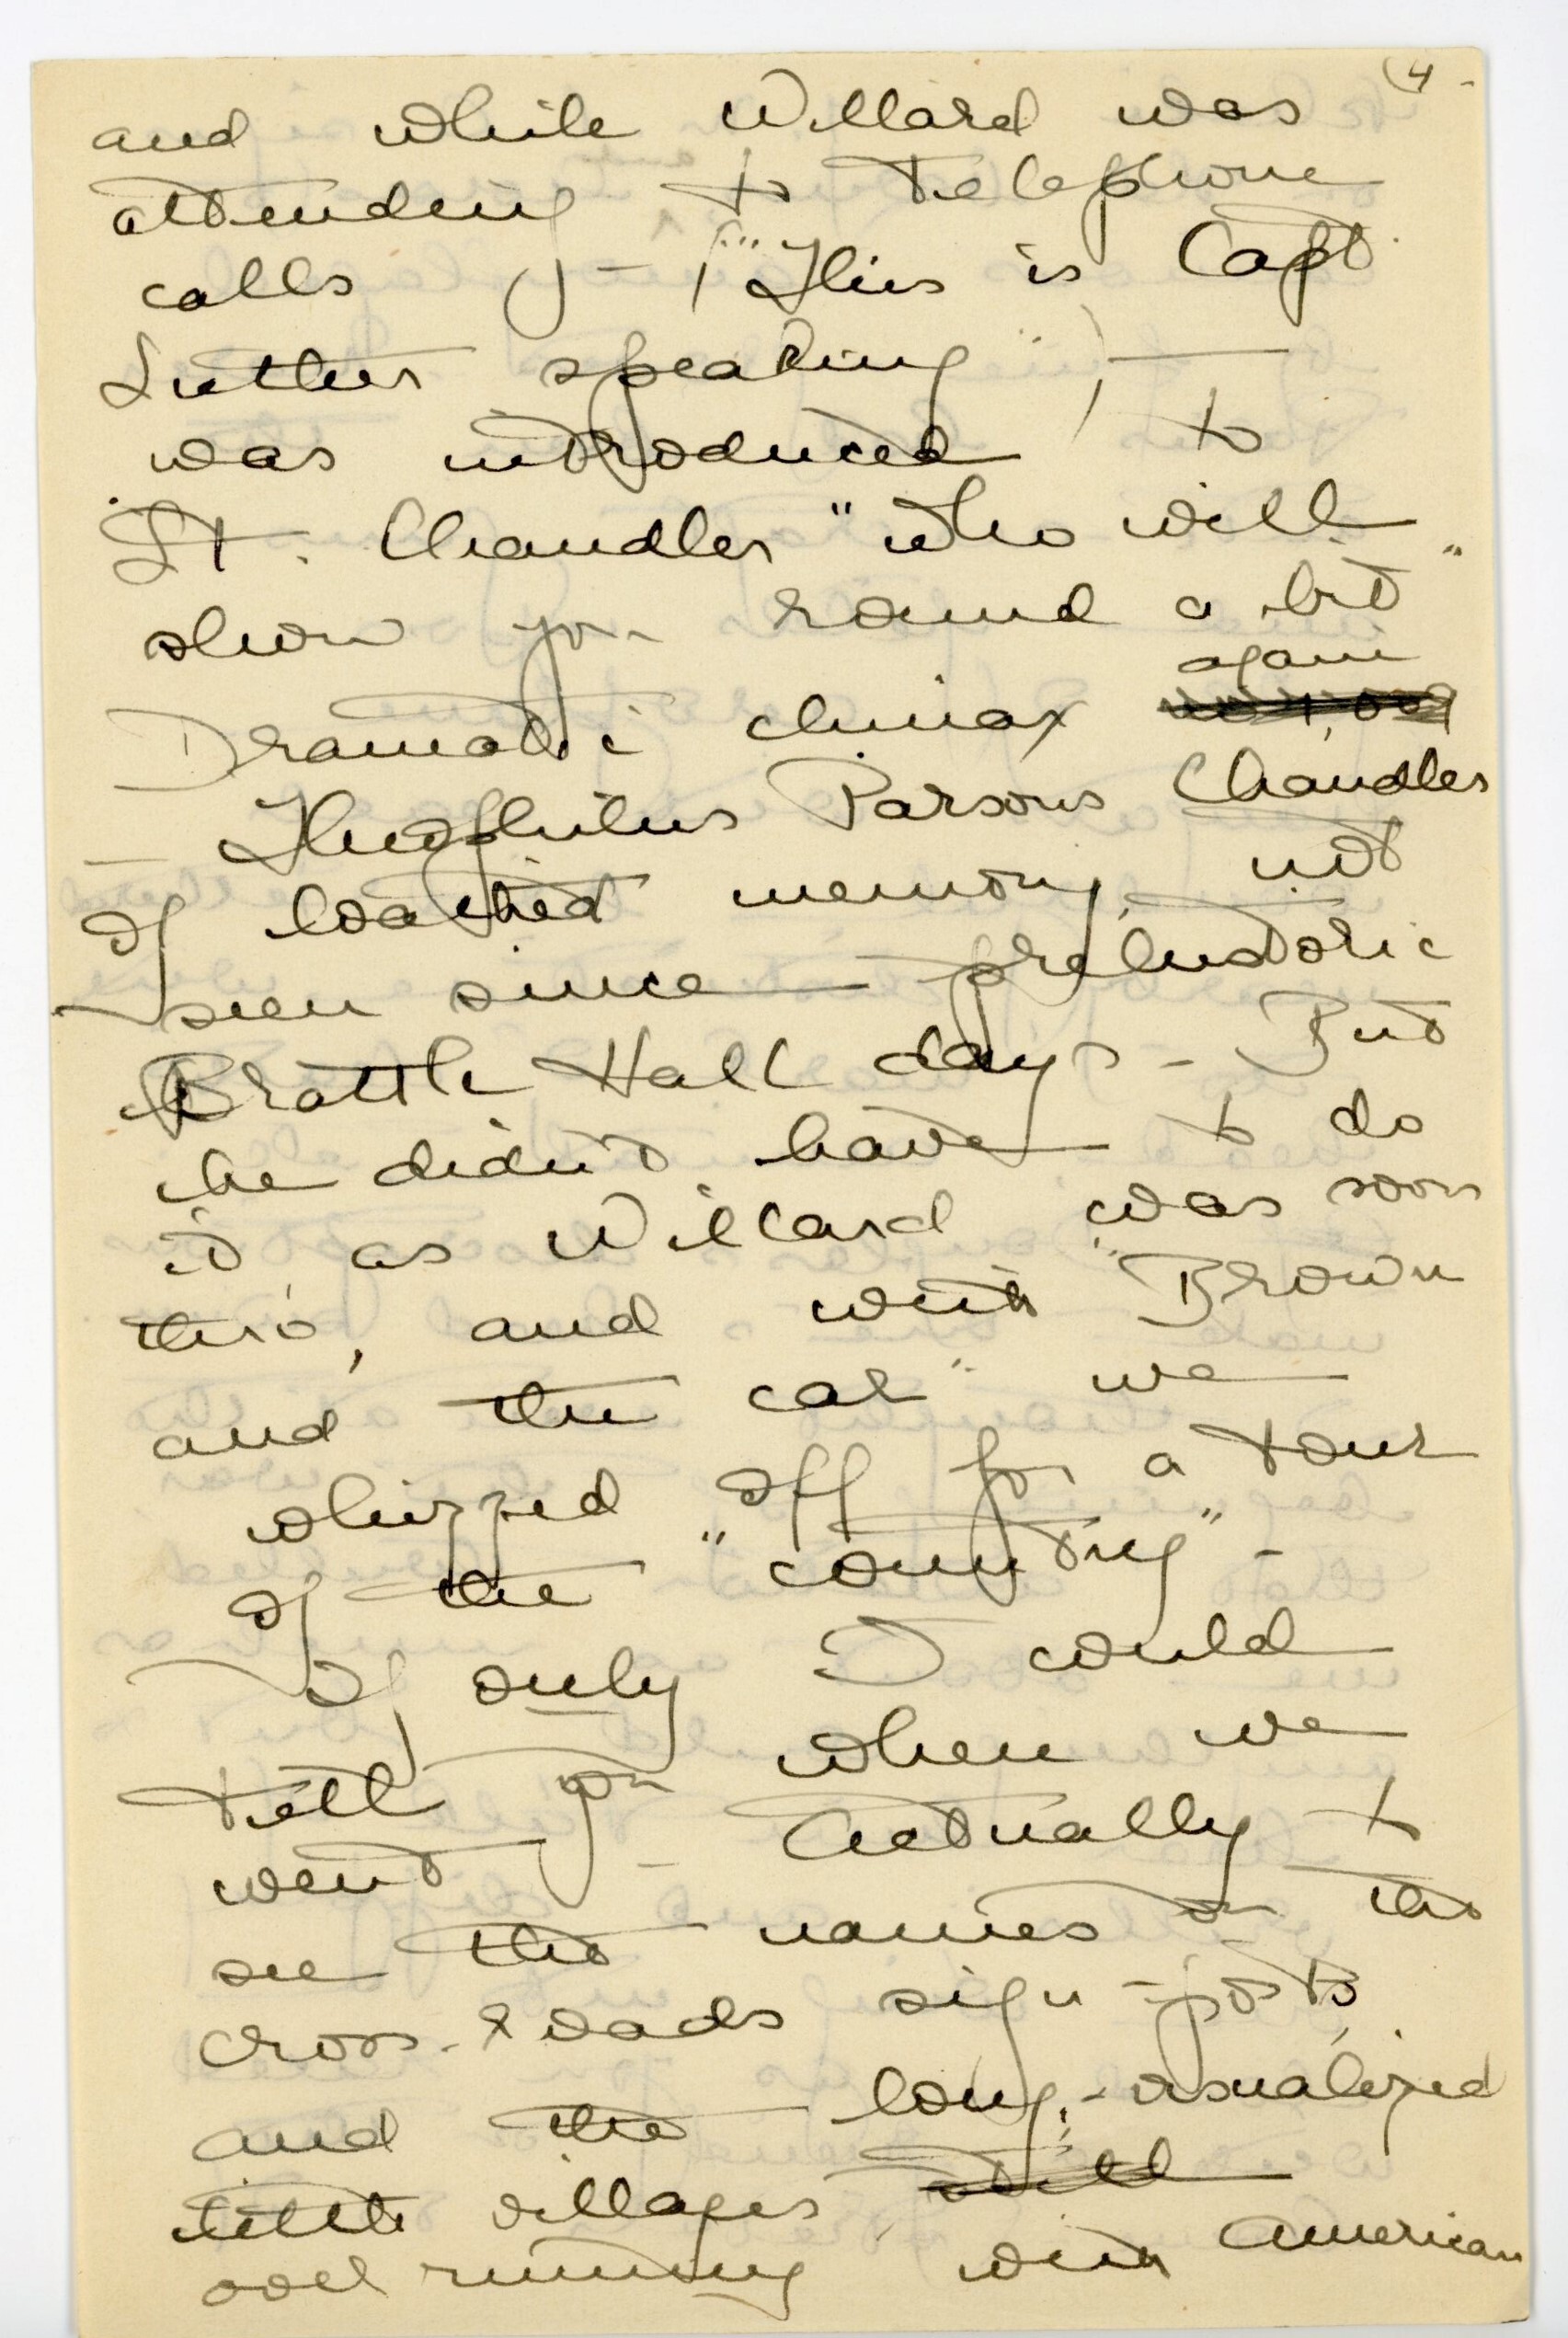 (4 -
and while Willard was
attending to telephone
calls - ("This is Capt
Luther speaking") -
was introduced to
Lt. Chandler "who will
show you round a bit"
again
Dramatic climax
- Theophilus Parsons Chandler
of loathed memory, not
seen since prehistoric
Brattle Hall days - But
he didn't have to do
it, as Willard was soon
thro', and with "Brown
and the car" we
whizzed off for a tour
of the "country" -
If only I could
tell you when we
went - Actually to
see the names on the
cross-roads sign-posts,
and the long-visualized
little villages still
over running with American